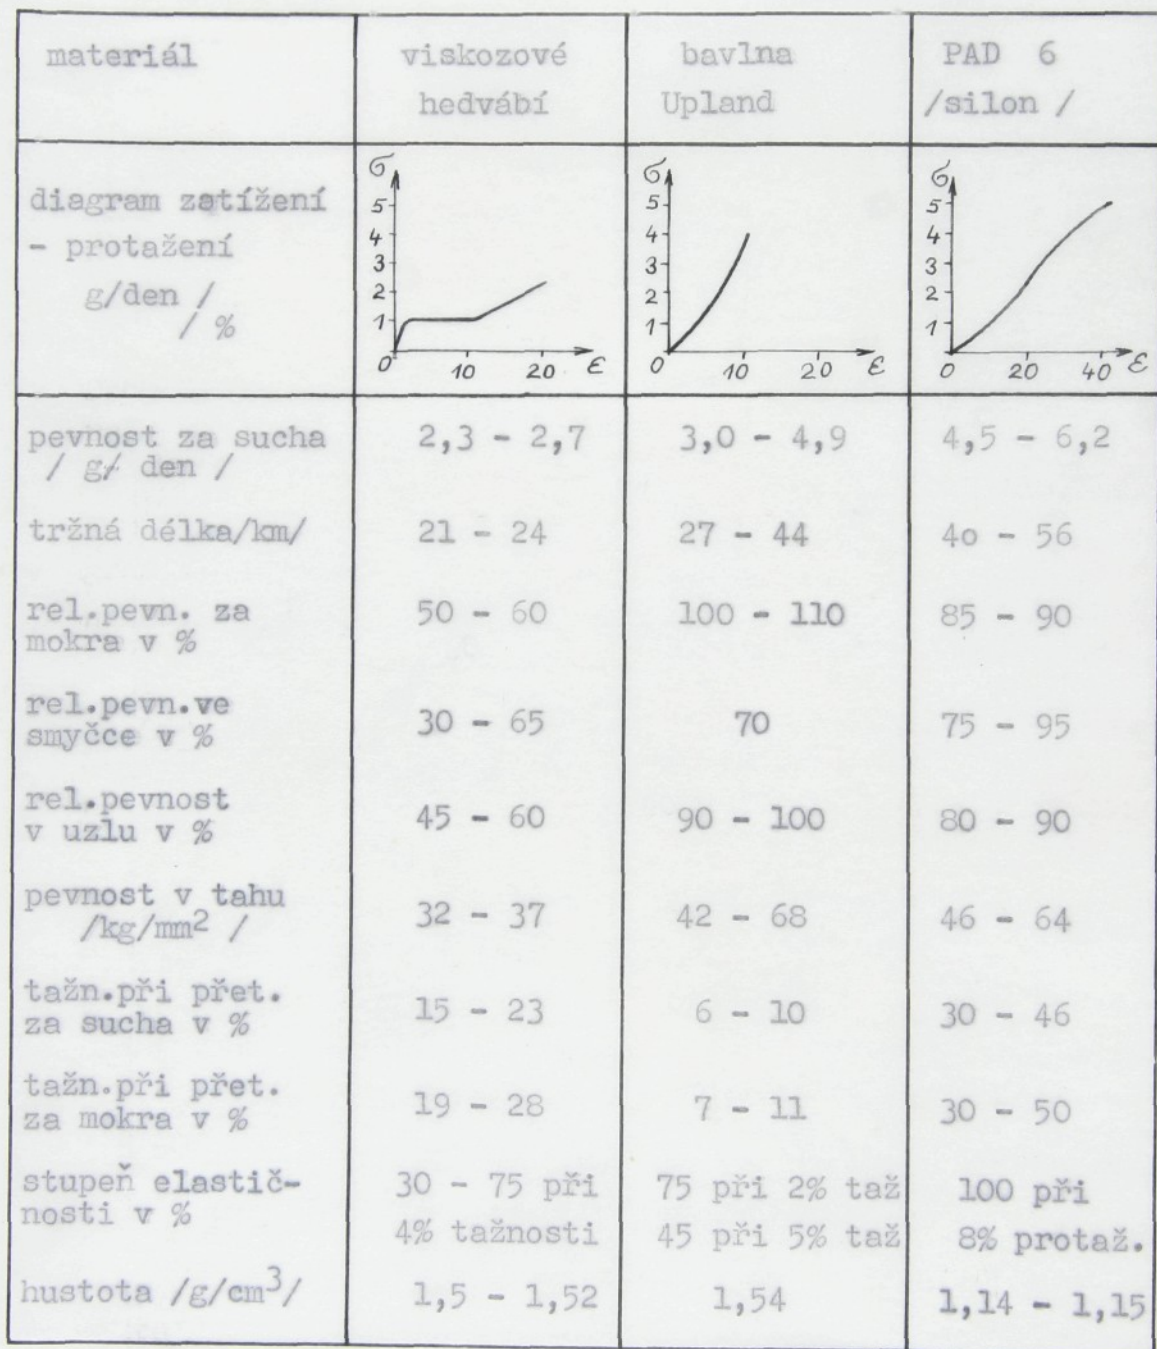 materiál
viskozové
hedvábí
bavlna
Upland
PAD 6
/silon /
diagram zatížení
- protažení
g/den /
/ %
σ
5
4
3
2
1
0
10
20
ε
σ
5
4
3
2
1
0
10
20
ε
σ
5
4
3
2
1
0
20
40
ε
pevnost za sucha
/ g/ den /
2,3 - 2,7
3,0 - 4,9
4,5 - 6,2
tržná délka/km/
21 - 24
27 - 44
4o - 56
rel.pevn. za
mokra v %
50 - 60
100 - 110
85 - 90
rel.pevn.ve
smyčce v %
30 - 65
70
75 - 95
rel.pevnost
v uzlu v %
45 - 60
90 - 100
80 - 90
pevnost v tahu
/kg/mm² /
32 - 37
42 - 68
46 - 64
tažn.při přet.
za sucha v %
15 - 23
6 - 10
30 - 46
tažn.při přet.
za mokra v %
19 - 28
7 - 11
30 - 50
stupeň elastič-
nosti v %
30 - 75 při
4% tažnosti
75 při 2% taž
45 při 5% taž
100 při
8% protaž.
hustota /g/cm³/
1,5 - 1,52
1,54
1,14 - 1,15